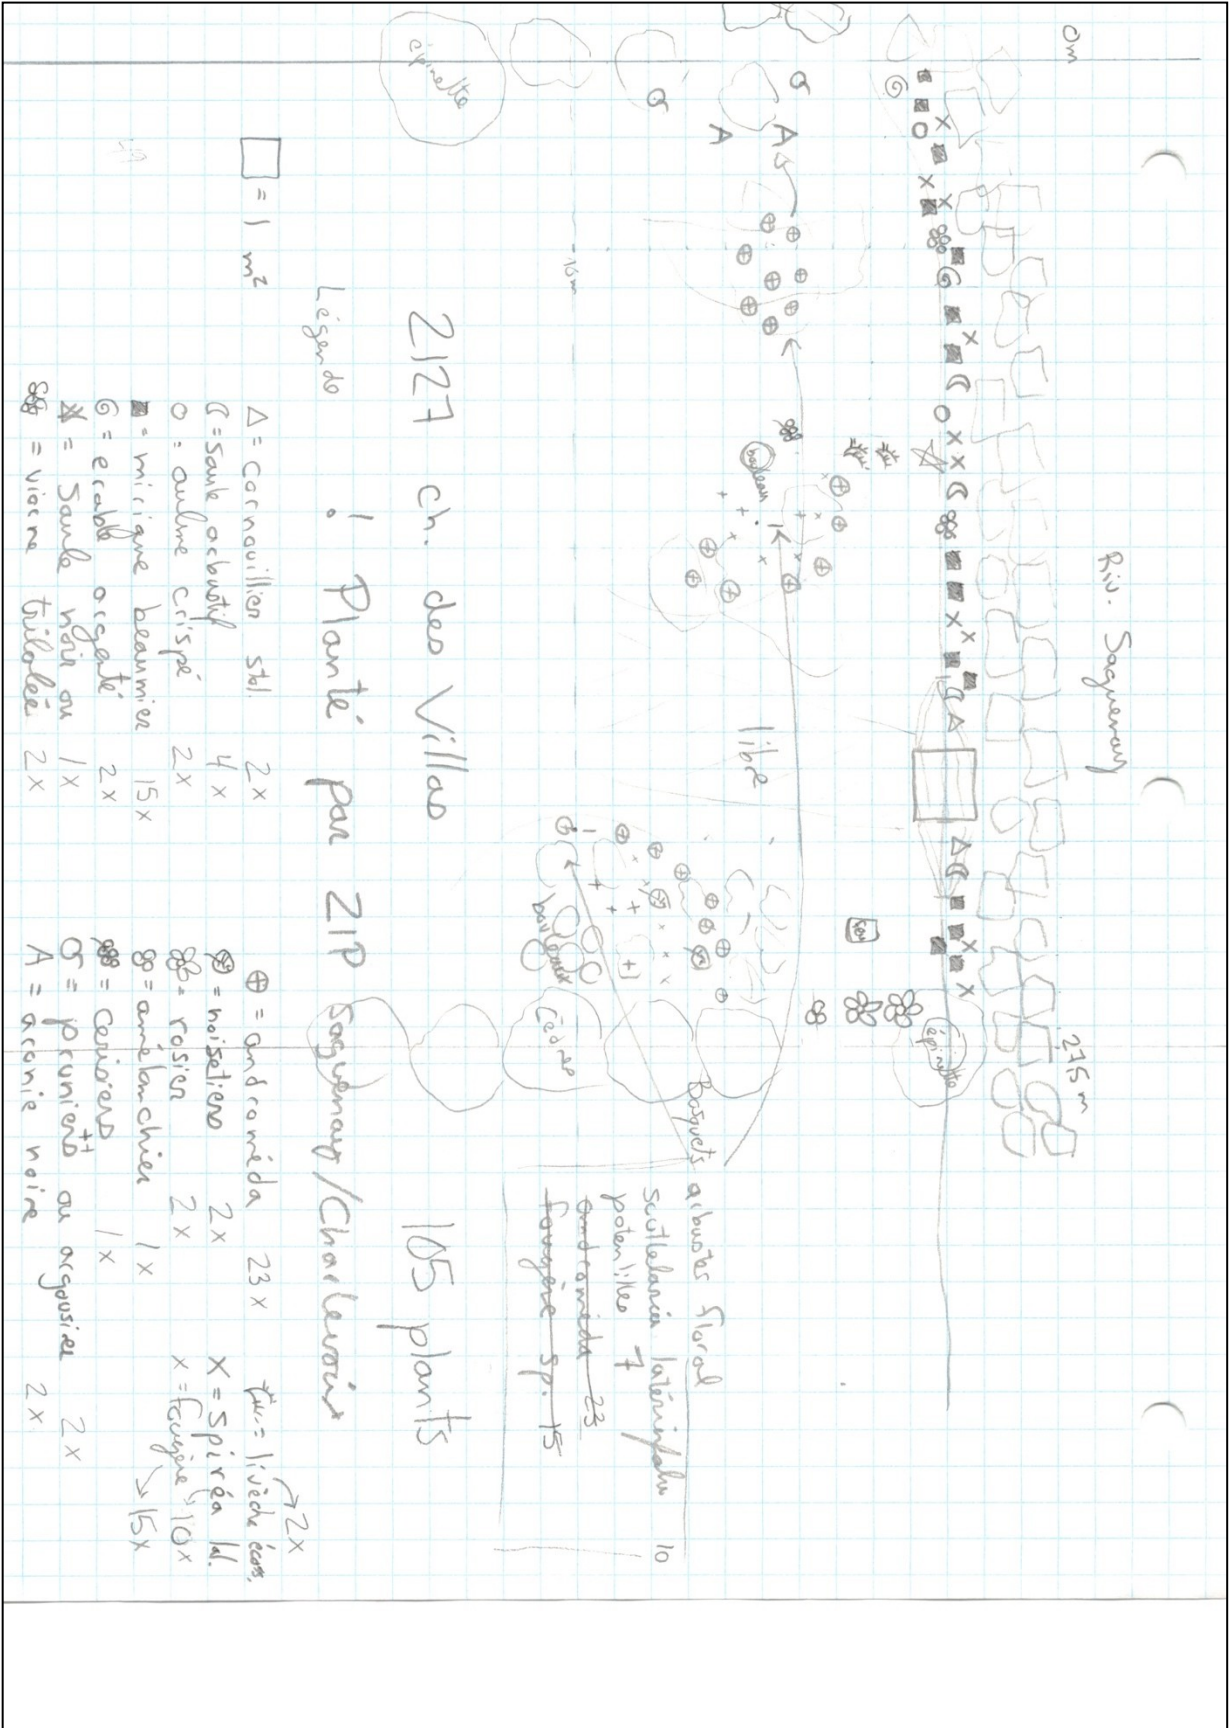 0m
Riv. Saguenay
27,5 m
épinette
feu
libre
bouleau
~16m
épinette
bouleaux
Cèdres
Bosquets arbustes floral
10
potentilles 7
andromeda 23
fougère sp. 15
2127 ch. des Villas 105 plants
! Planté par ZIP Saguenay/Charlevoix
□ = 1 m²
Légende
Δ = cornouillier stol 2x
☾ = saule arbustif 4x
O = aulne crispé 2x
■ = mirique beaumier 15x
G = erable argenté 2x
X = Saule noir ou 1x
= viorne trilobée 2x
⊕ = andromeda 23x
= noisetiers 2x
= rosier 2x
= amélanchier 1x
= cerisiers 1x
σ = pruniers ++ ou argousier 2x
A = aronie noire 2x
= livèche écoss. → 2x
X = spiréa lat.
x = fougère 10x
→ 15x